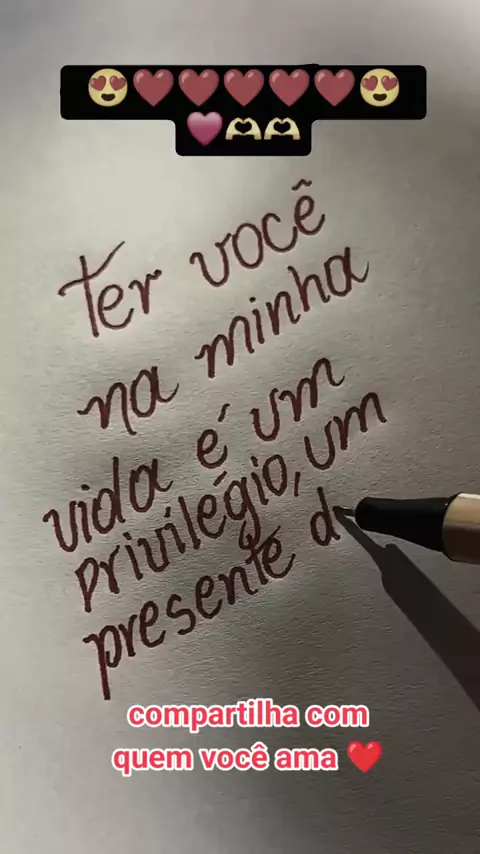 😍❤️❤️❤️❤️❤️😍
💗🫶🫶
Ter você
na minha
vida é um
privilégio, um
presente d
compartilha com
quem você ama ❤️